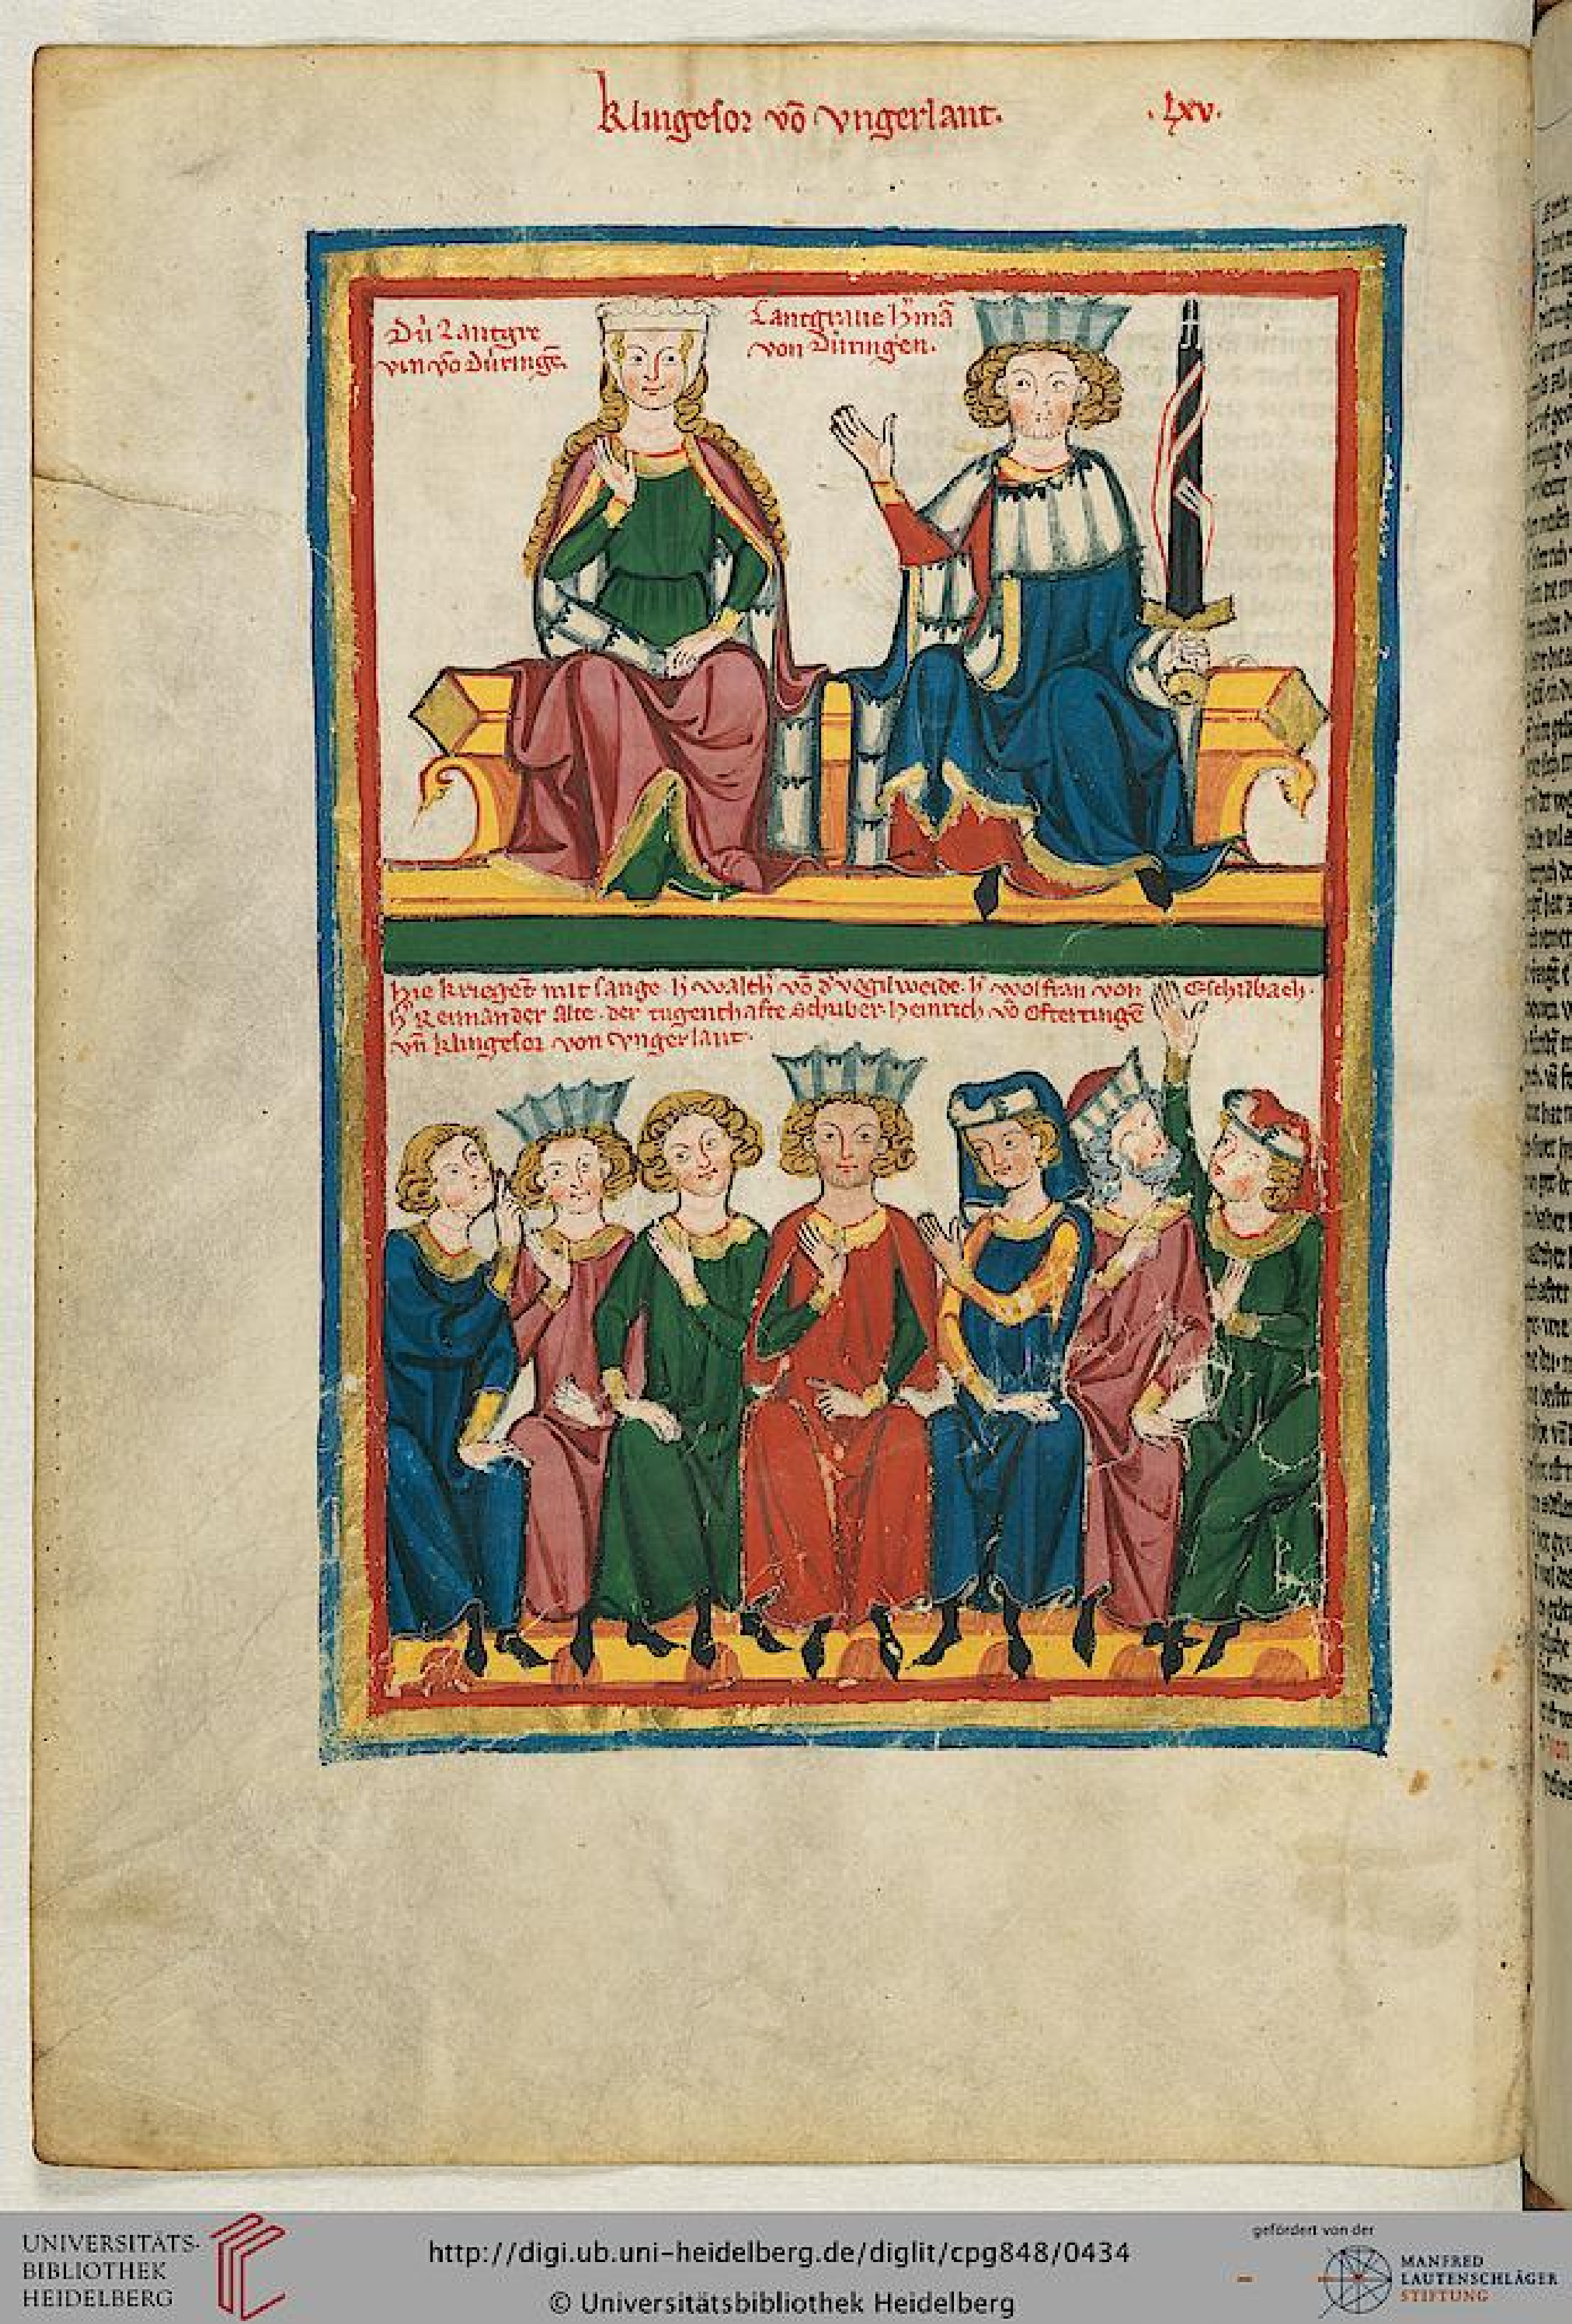 klingesor vō vngerlant. .Lxv.
Dü Lantgre
vin vō Düringē
Lantgraue h'mā
von Düringen.
Hie krieget mit sange. h' walth' vō d' vogilweide. h' wolfran von Eschilbach.
h' Reiman der Alte. der tugenthafte Schriber. heinrich vō Ofteringē
vn̄ klingesor von vngerlant.
UNIVERSITÄTS-
BIBLIOTHEK
HEIDELBERG
http://digi.ub.uni-heidelberg.de/diglit/cpg848/0434
© Universitätsbibliothek Heidelberg
gefördert von der
MANFRED
LAUTENSCHLÄGER
STIFTUNG